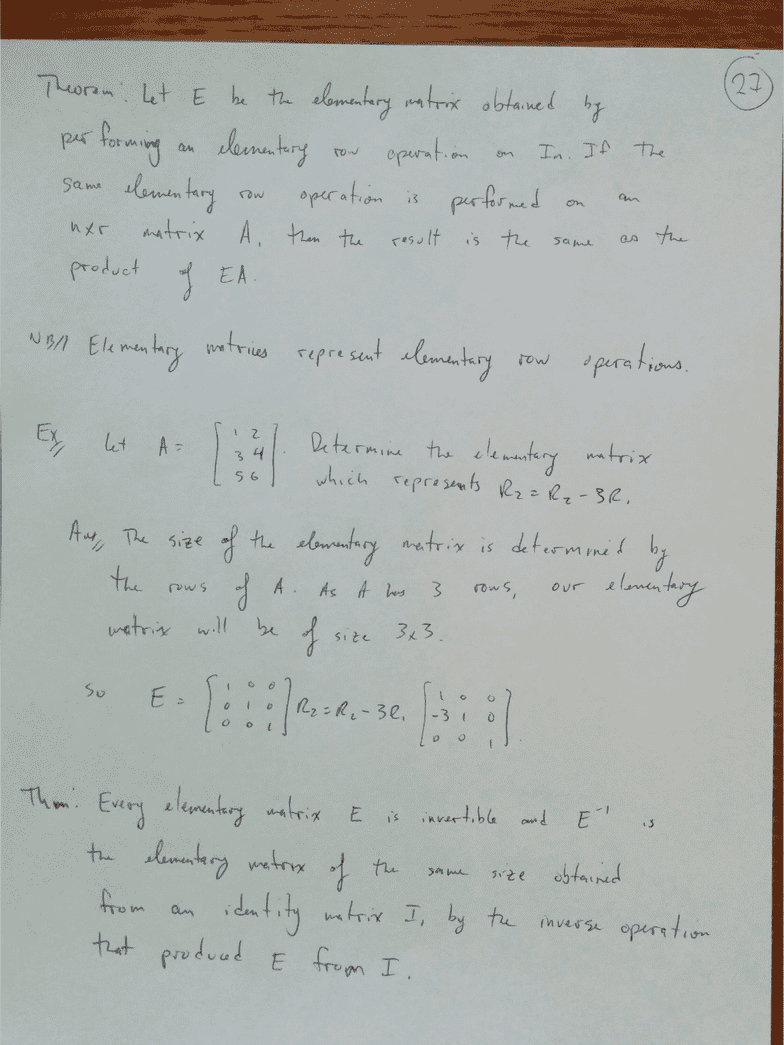 27
Theorem: Let E be the elementary matrix obtained by
performing an elementary row operation on In. If the
same elementary row operation is performed on an
nxr matrix A, then the result is the same as the
product of EA.
NB// Elementary matrices represent elementary row operations.
Ex// Let A = [1 2; 3 4; 5 6]. Determine the elementary matrix
which represents R2 = R2 - 3R1
Ans// The size of the elementary matrix is determined by
the rows of A. As A has 3 rows, our elementary
matrix will be of size 3x3.
So E = [1 0 0; 0 1 0; 0 0 1] R2 = R2 - 3R1 [1 0 0; -3 1 0; 0 0 1].
Thm: Every elementary matrix E is invertible and E⁻¹ is
the elementary matrix of the same size obtained
from an identity matrix I, by the inverse operation
that produced E from I.